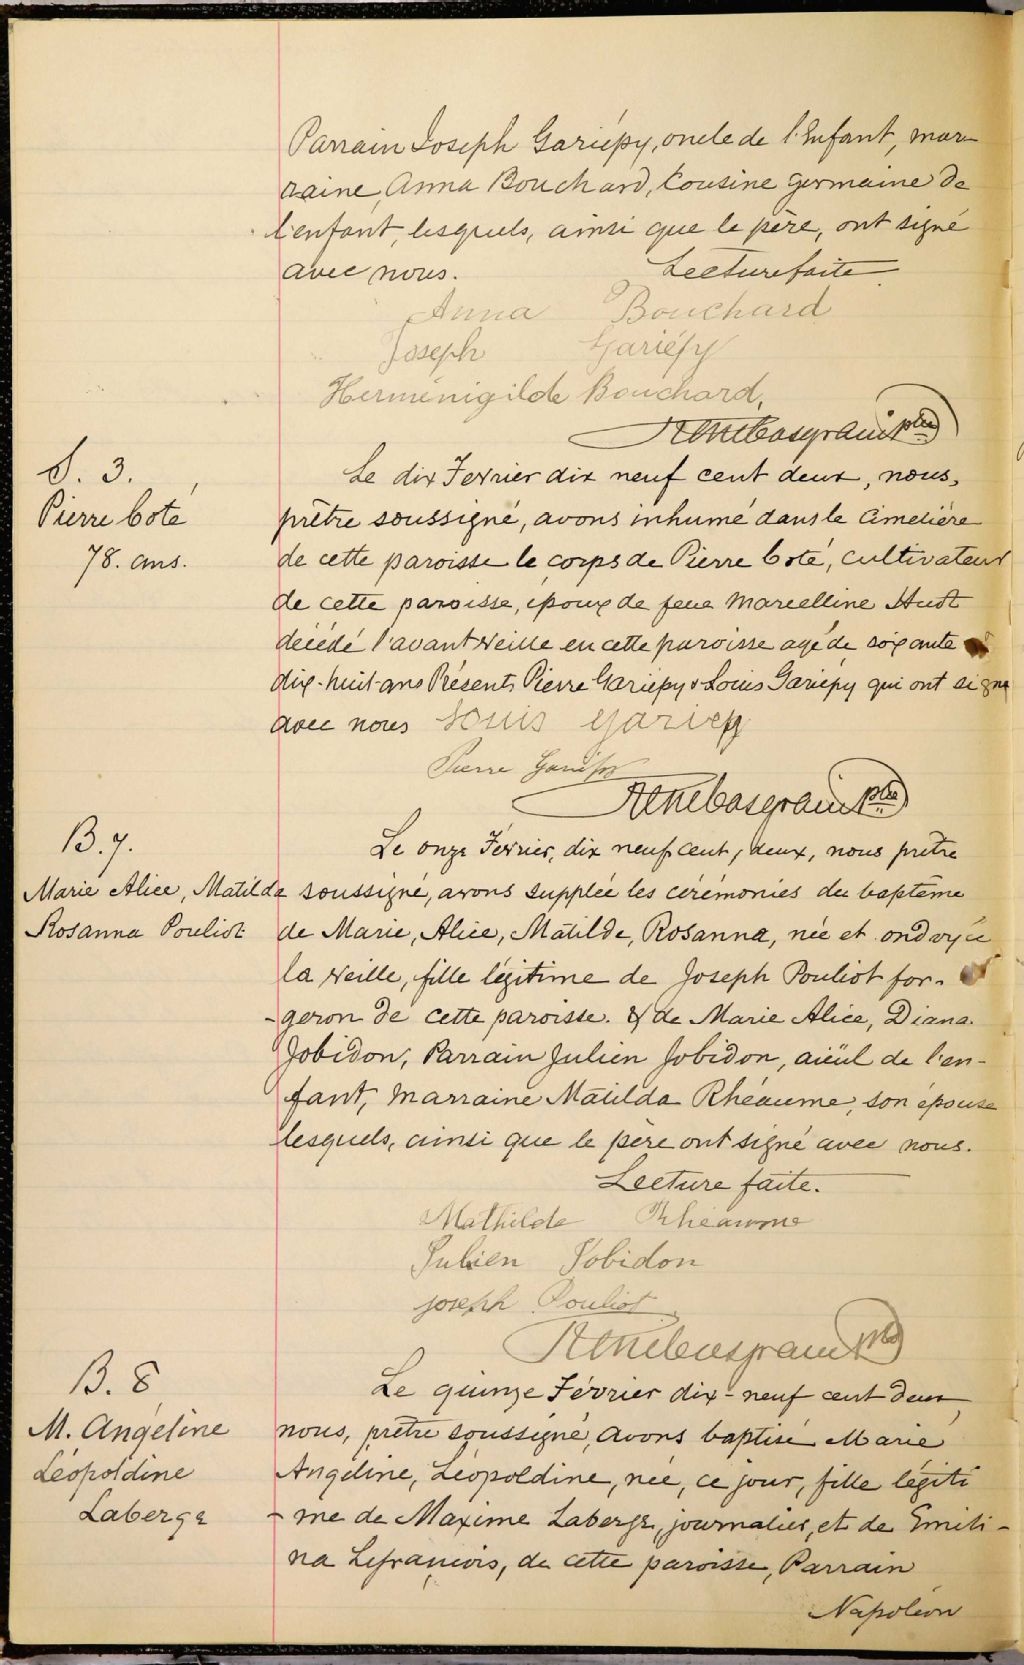 Parrain Joseph Gariépy, oncle de l'Enfant, mar-
raine, Anna Bouchard, Cousine germaine de
l'enfant, lesquels, ainsi que le père, ont signé
avec nous. Lecture faite
Anna Bouchard
Joseph Gariépy
Herménigilde Bouchard,
ptre
S. 3.
Pierre Coté
78. ans.
Le dix Fevrier dix neuf cent deux, nous,
prêtre soussigné, avons inhumé dans le Cimetière
de cette paroisse le corps de Pierre Coté, cultivateur
de cette paroisse, époux de feue Marcelline Huot
décédé l'avant veille en cette paroisse agé de soixante
dix-huit ans Présents Pierre Gariépy & Louis Gariépy qui ont signé
avec nous Louis Gariepy
Pierre Gariépy
ptre
B. 7.
Marie Alice, Matilda
Rosanna Pouliot
Le onze Février, dix neuf cent, deux, nous prêtre
soussigné, avons supplée les cérémonies du baptême
de Marie, Alice, Matilde, Rosanna, née et ondoyée
la veille, fille légitime de Joseph Pouliot for-
-geron de cette paroisse. & de Marie Alice, Diana
Jobidon, Parrain Julien Jobidon, aiëul de l'en-
fant, Marraine Matilda Rhéaume, son épouse
lesquels, ainsi que le père ont signé avec nous.
Lecture faite.
Mathilde Rhéaume
Julien Jobidon
joseph Pouliot
ptre
B. 8
M. Angéline
Léopoldine
Laberge
Le quinze Février dix-neuf cent deux,
nous, prêtre soussigné, avons baptisé Marie
Angéline, Léopoldine, née, ce jour, fille légiti
-me de Maxime Laberge, journalier, et de Emili-
na Lefrançois, de cette paroisse, Parrain
Napoléon